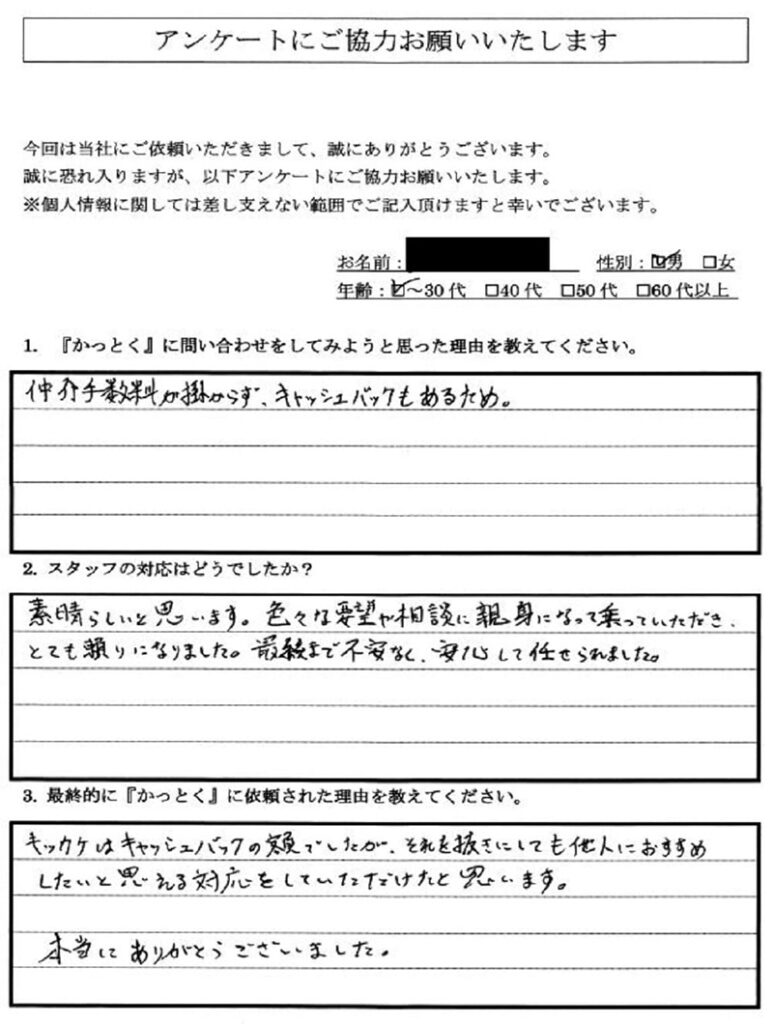 アンケートにご協力お願いいたします
今回は当社にご依頼いただきまして、誠にありがとうございます。
誠に恐れ入りますが、以下アンケートにご協力お願いいたします。
※個人情報に関しては差し支えない範囲でご記入頂けますと幸いでございます。
お名前: 性別:☑男 □女
年齢:☑～30代 □40代 □50代 □60代以上
1. 『かっとく』に問い合わせをしてみようと思った理由を教えてください。
仲介手数料が掛からず、キャッシュバックもあるため。
2. スタッフの対応はどうでしたか？
素晴らしいと思います。色々な要望や相談に親身になって乗っていただき、
とても頼りになりました。最終まで不安なく、安心して任せられました。
3. 最終的に『かっとく』に依頼された理由を教えてください。
キッカケはキャッシュバックの額でしたが、それを抜きにしても他人におすすめ
したいと思える対応をしていただけたと思います。
本当にありがとうございました。